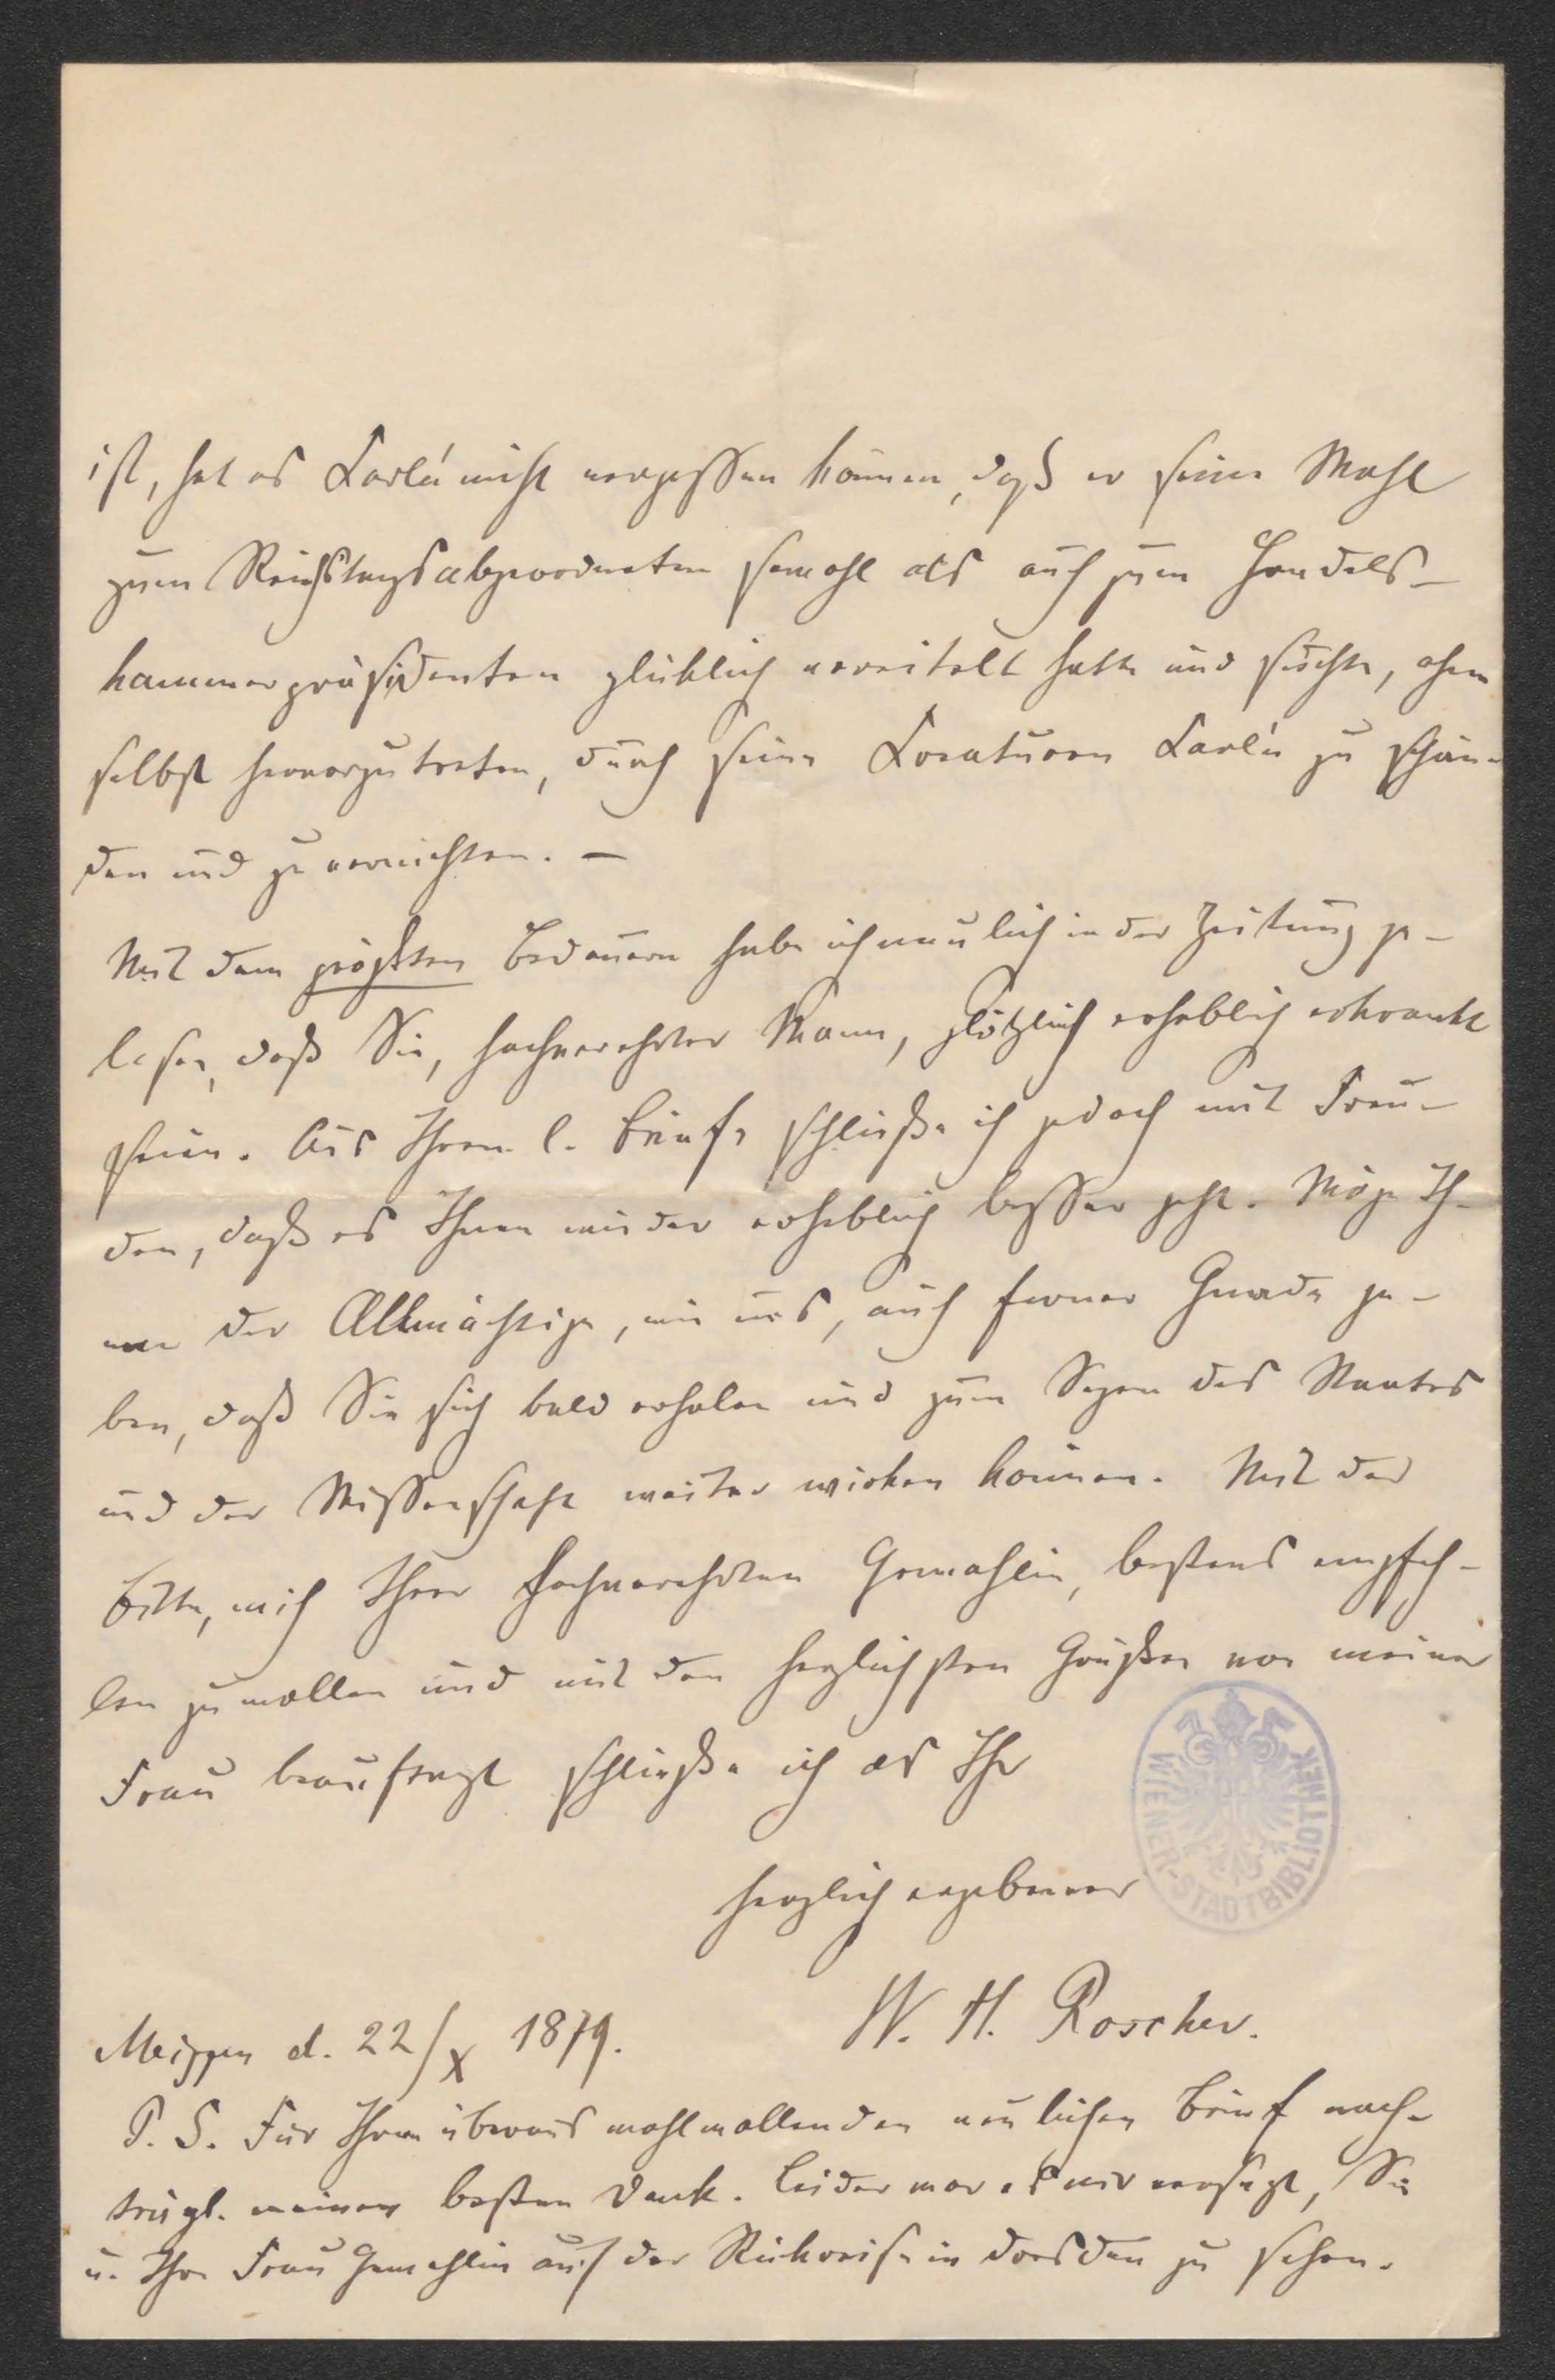 ist, hat es Karln nicht vergessen können, daß er seine Wahl
zum Reichstagsabgeordneten sowohl als auch zum Handels-
kammerpräsidenten glücklich vereitelt hatte und suchte, ohne
selbst hervorzutreten, durch seine Kreaturen zu schän-
den und zu vernichten. –
Mit dem größten Bedauern habe ich neulich in der Zeitung ge-
lesen, daß Sie, hochverehrter Mann, plötzlich erheblich erkrankt
seien. Aus Ihrem l. Briefe schließe ich jedoch mit Freu-
den, daß es Ihnen wieder erheblich besser geht. Möge Ih-
nen der Allmächtige, wie uns, auch ferner Gnade ge-
ben, daß Sie sich bald erholen und zum Segen des Staates
und der Wissenschaft weiter wirken können. Mit der
Bitte, mich Ihrer hochverehrten Gemahlin, bestens empfeh-
len zu wollen und mit den herzlichsten Grüßen von meiner
Frau beauftragt schließe ich als Ihr
herzlich ergebener
W. H. Roscher.
Meissen d. 22/X 1879.
P. S. Für Ihren überaus wohlwollenden neulichen Brief nach-
trägl. meinen besten Dank. Leider war es mir versagt, Sie
u. Ihre Frau Gemahlin auf der Rückreise in Dresden zu sehen.
WIENER-STADTBIBLIOTHEK